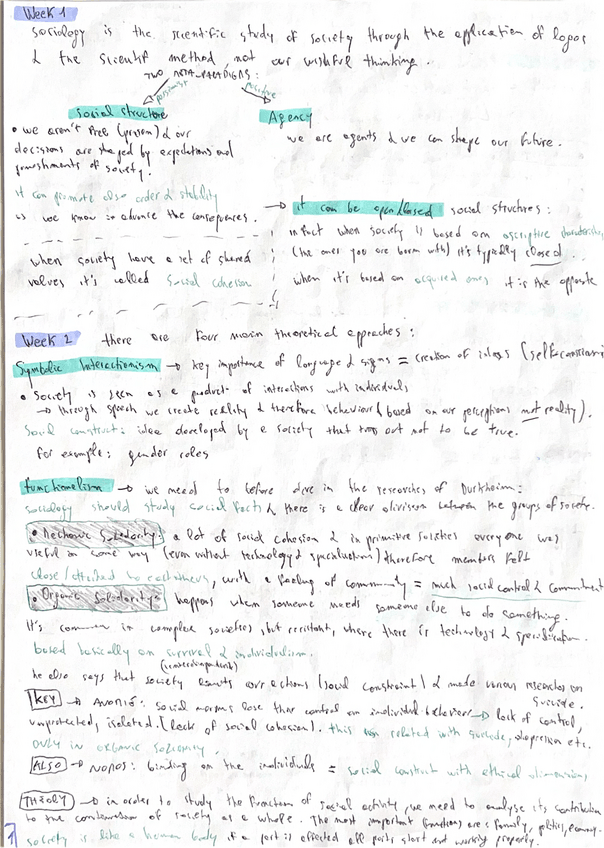 Week 1
sociology is the scientific study of society through the application of logos
& the scientif method, not our wishful thinking.
TWO META-PARADIGMS:
pessimist positive
social structure Agency
• we aren't free (prison) & our
decisions are shaped by expectations and
punishments of society.
we are agents & we can shape our future.
it can promote also order & stability
as we know in advance the consequences.
→ it can be open/closed social structures:
in fact when society is based on ascriptive characteristics
(the ones you are born with) it's typically closed
when it's based on acquired ones it is the opposite
when society have a set of shared
values it's called Social cohesion
Week 2 there are four main theoretical approaches:
Symbolic Interactionism → key importance of language & signs = creation of ideas
• Society is seen as a product of interactions with individuals
→ through speech we create reality & therefore behaviour (based on our perceptions not reality).
Social construct: idea developed by a society that turn out not to be true.
for example: gender roles
Functionalism → we need to before dive in the researches of Durkheim:
sociology should study social facts & there is a clear division between the groups of society.
• Mechanic Solidarity: a lot of social cohesion & in primitive societies everyone was
useful in some way (even without technology & specialization) therefore members felt
close/attached to each others, with a feeling of community = much social control & commitment
• Organic Solidarity: happens when someone needs someone else to do something.
It's common in complex societies, but resistant, where there is technology & specialization.
based basically on survival & individualism.
(interdependents)
he also says that society limits our actions (social constraint) & made various researches on
suicide.
KEY → ANOMIE: social norms lose their control on individual behavior → lack of control,
unprotected, isolated. (lack of social cohesion). this was related with suicide, depression etc.
ONLY IN ORGANIC SOLIDARITY.
ALSO → NOMOS: binding on the individuals = social construct with ethical dimensions
THEORY → in order to study the function of social activity, we need to analyse its contribution
to the continuation of society as a whole. The most important functions are: family, politics, economy.
society is like a human body if a part is affected all parts start not working properly.
1